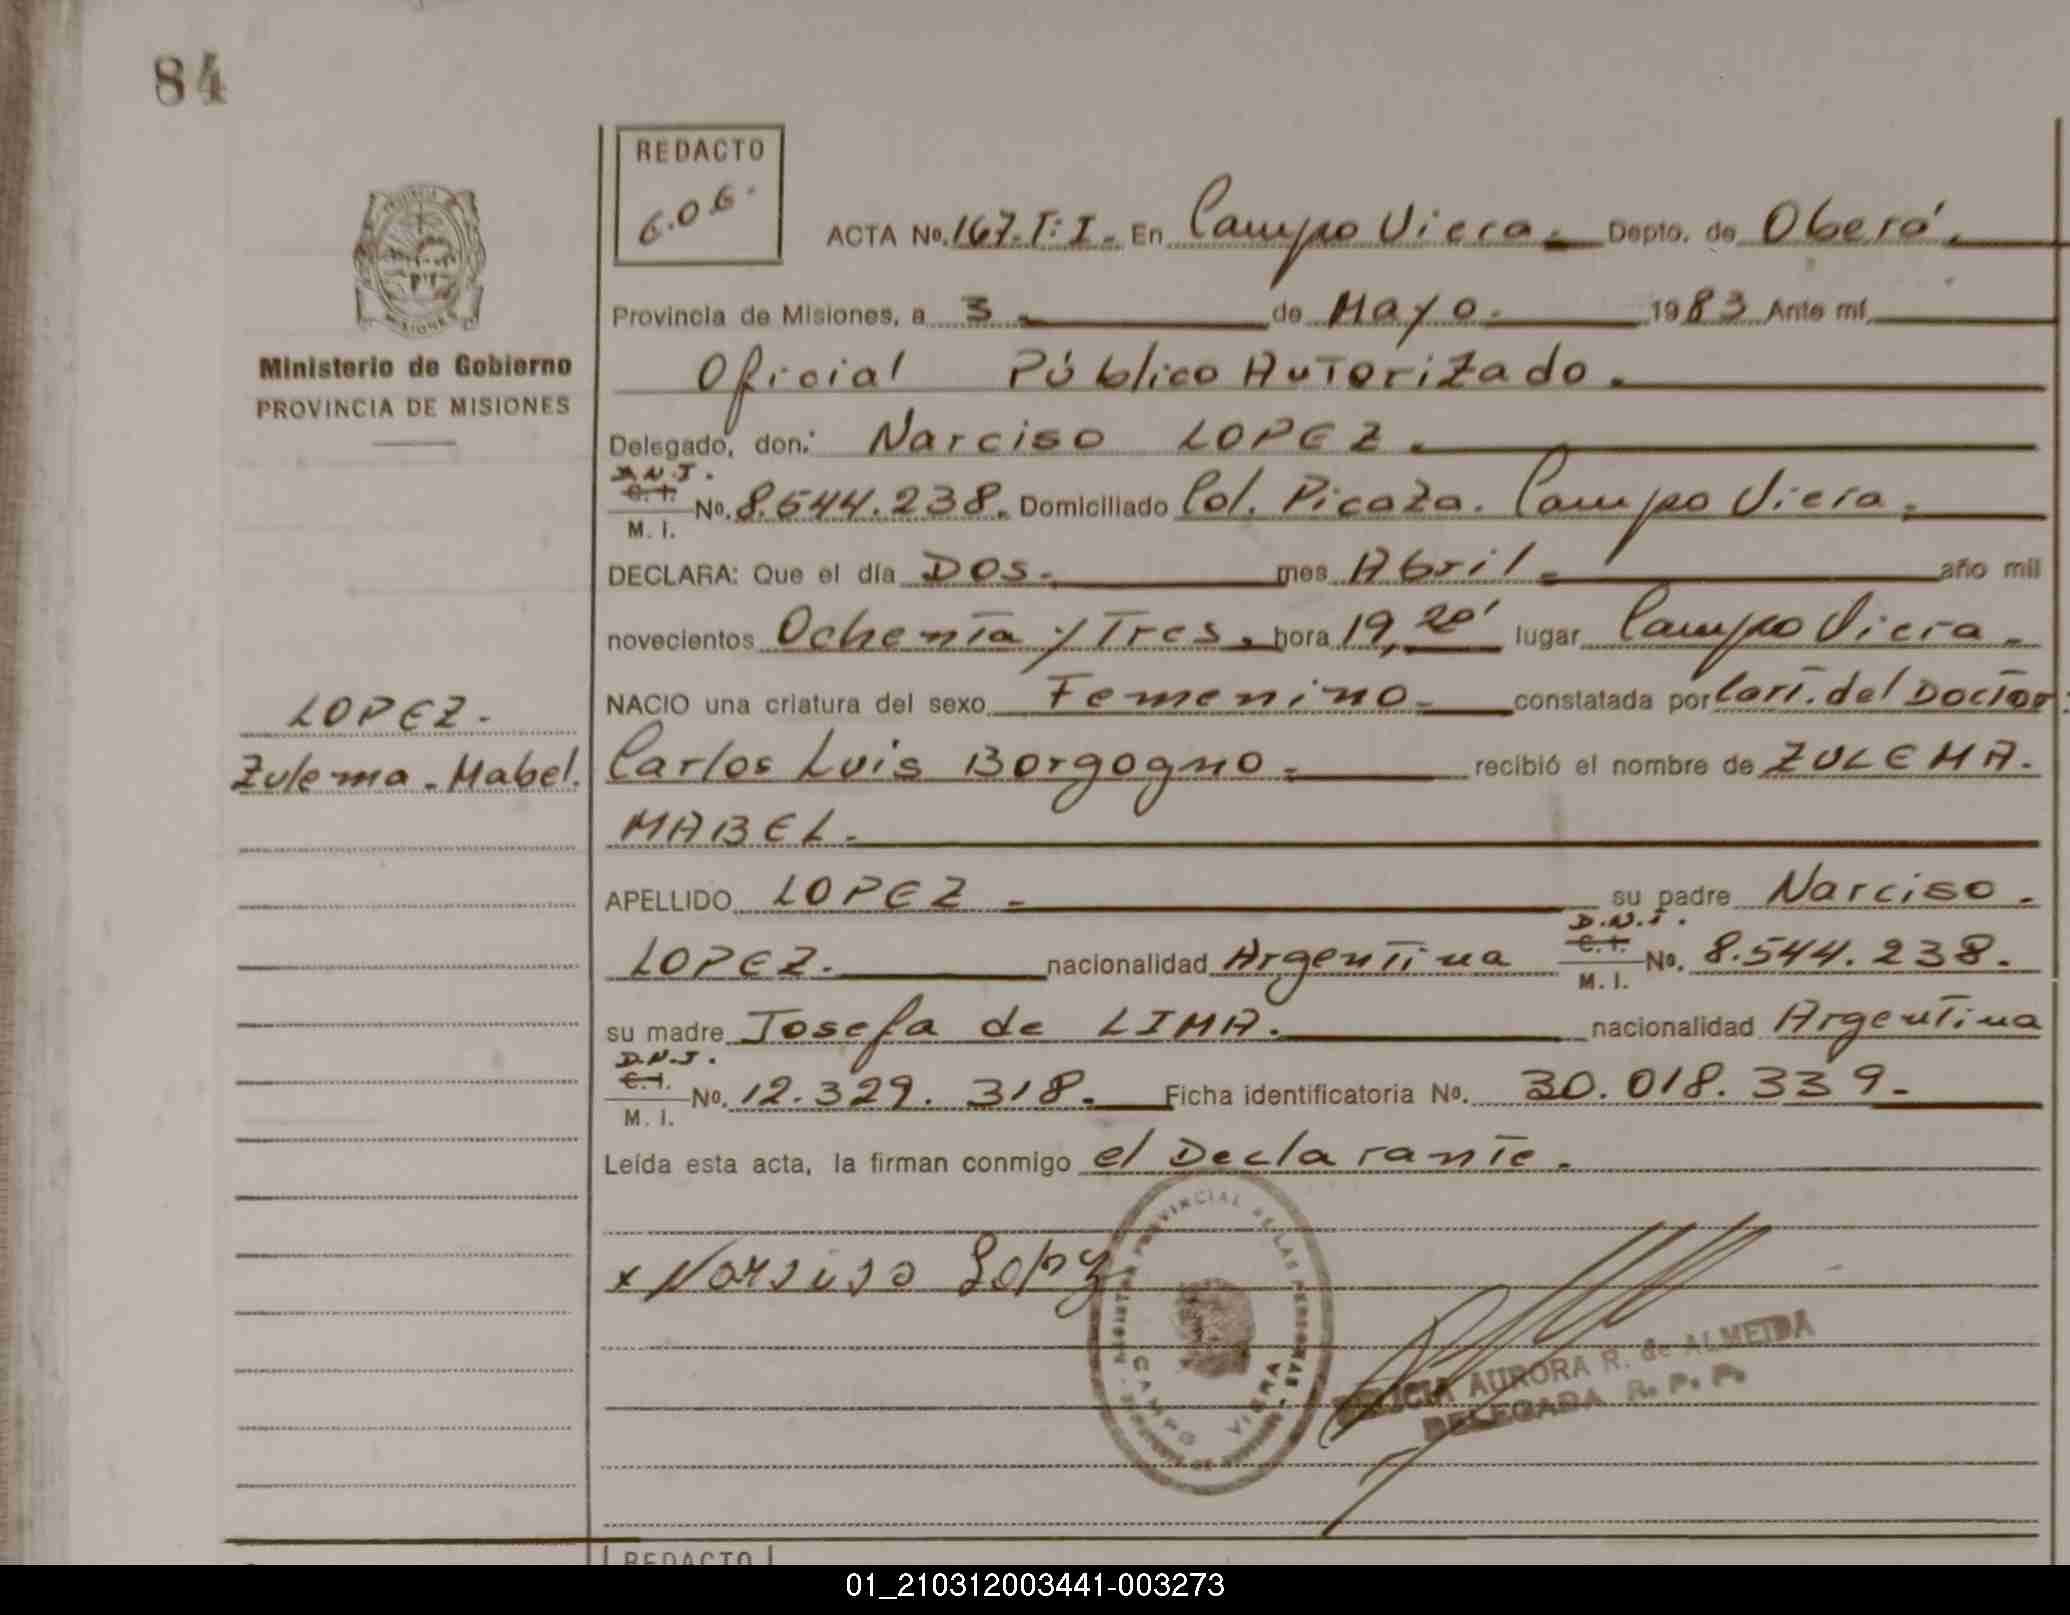 84
REDACTO
6.06.
ACTA No. 167.T:I. En Campo Viera. Depto. de Oberá.
Provincia de Misiones, a 3 de Mayo. 1983 Ante mí
Oficial Público Autorizado.
Ministerio de Gobierno
PROVINCIA DE MISIONES
Delegado, don: Narciso LOPEZ.
D.N.I.
C.I. No. 8.544.238. Domiciliado Col. Picaza. Campo Viera.
M. I.
DECLARA: Que el día Dos. mes Abril. año mil
novecientos Ochenta y Tres. hora 19,20' lugar Campo Viera.
NACIO una criatura del sexo Femenino. constatada por Cert. del Doctor
LOPEZ.
Zulema. Mabel.
Carlos Luis Borgogno. recibió el nombre de ZULEMA.
MABEL.
APELLIDO LOPEZ. su padre Narciso.
D.N.I.
LOPEZ. nacionalidad Argentina C.I. No. 8.544.238.
M. I.
su madre Josefa de LIMA. nacionalidad Argentina
D.N.I.
C.I. No. 12.329.318. Ficha identificatoria No. 30.018.339.
M. I.
Leída esta acta, la firman conmigo el Declarante.
x Narsiso Lopez
PROVINCIAL DE LAS PERSONAS
CAMPO VIERA
AURORA R. de ALMEIDA
DELEGADA R. P. P.
REDACTO
01_210312003441-003273